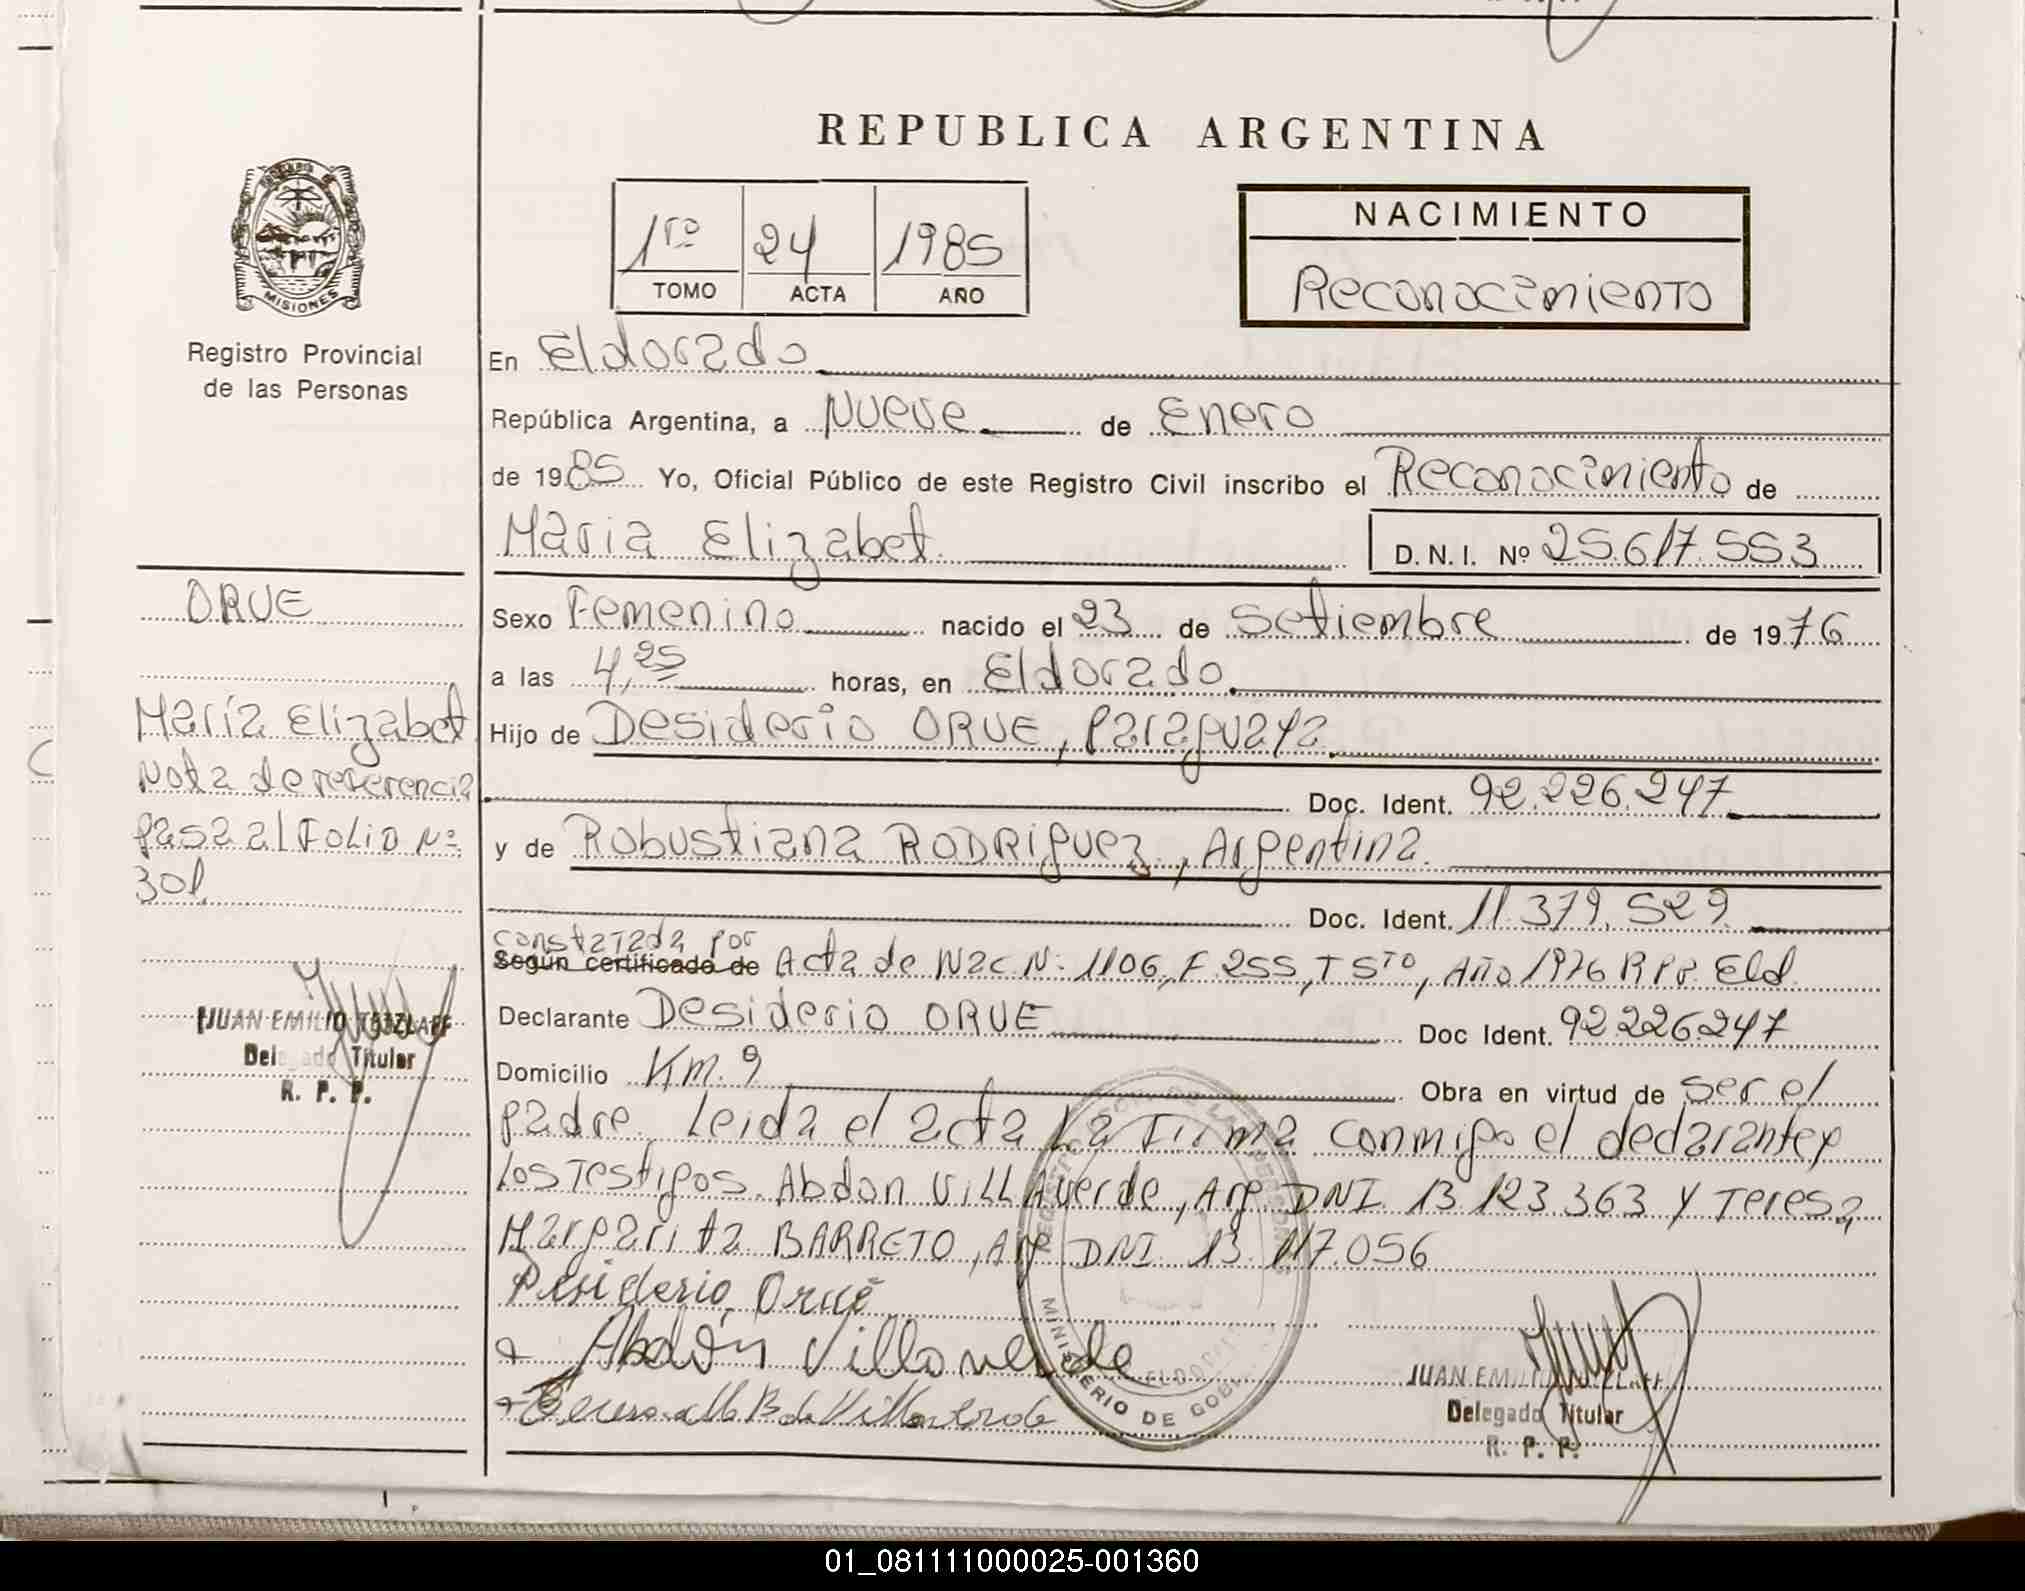 REPUBLICA ARGENTINA
NACIMIENTO
Reconocimiento
1ro 24 1985
TOMO ACTA AÑO
MISIONES
Registro Provincial
de las Personas
En Eldorado
República Argentina, a Nueve de Enero
de 1985 Yo, Oficial Público de este Registro Civil inscribo el Reconocimiento de
Maria Elizabet. D.N.I. Nº 25.617.553
Sexo Femenino nacido el 23 de Setiembre de 1976
a las 4,25 horas, en Eldorado.
Hijo de Desiderio ORUE, Paraguaya.
Doc. Ident. 92.226.247
y de Robustiana RODRIGUEZ, Argentina.
Doc. Ident. 11.379.529
constatada por
Según certificado de Acta de Nac. Nº 1106, F 255, T 5TO, Año 1976 R.P.P. Eld.
Declarante Desiderio ORUE Doc Ident. 92.226.247
Domicilio Km. 9 Obra en virtud de ser el
padre. Leida el acta la Firma conmigo el declarante y
los Testigos. Abdon VILLAverde, Arg DNI 13.123.363 y Teresa
Margarita BARRETO, Arg DNI 13.117.056
Desiderio Orué
Abdón Villaverde
Teresa M B de Villaverde
ORUE
María Elizabet
Nota de referencia
Pasa al FOLIO Nº
301
JUAN EMILIO TETZLAFF
Delegado Titular
R. P. P.
MINISTERIO DE GOBI
JUAN EMILIO TETZLAFF
Delegado Titular
R. P. P.
01_081111000025-001360